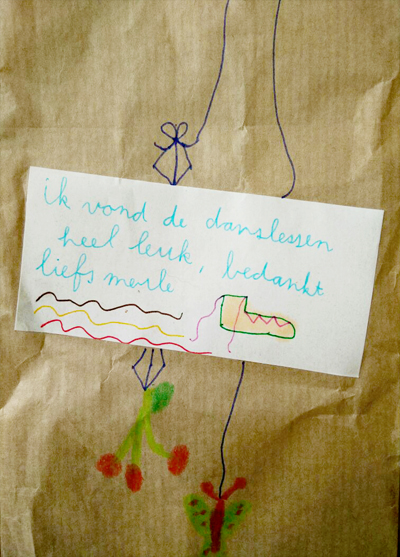 ik vond de danslessen
heel leuk, bedankt
liefs merle